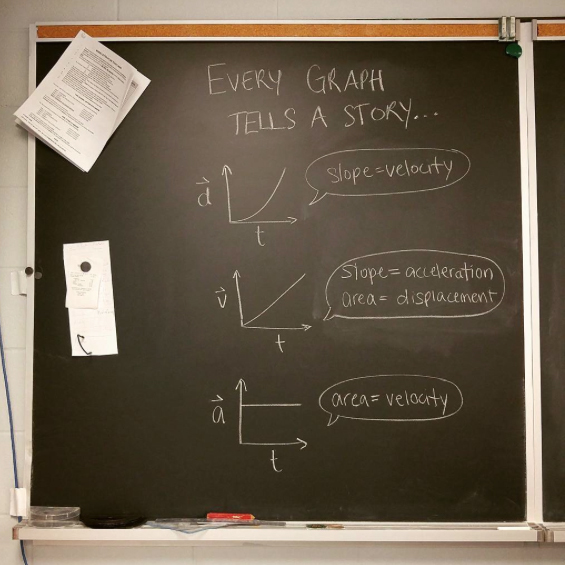 EVERY GRAPH
TELLS A STORY...
d
t
slope=velocity
v
t
slope= acceleration
area= displacement
a
t
area= velocity